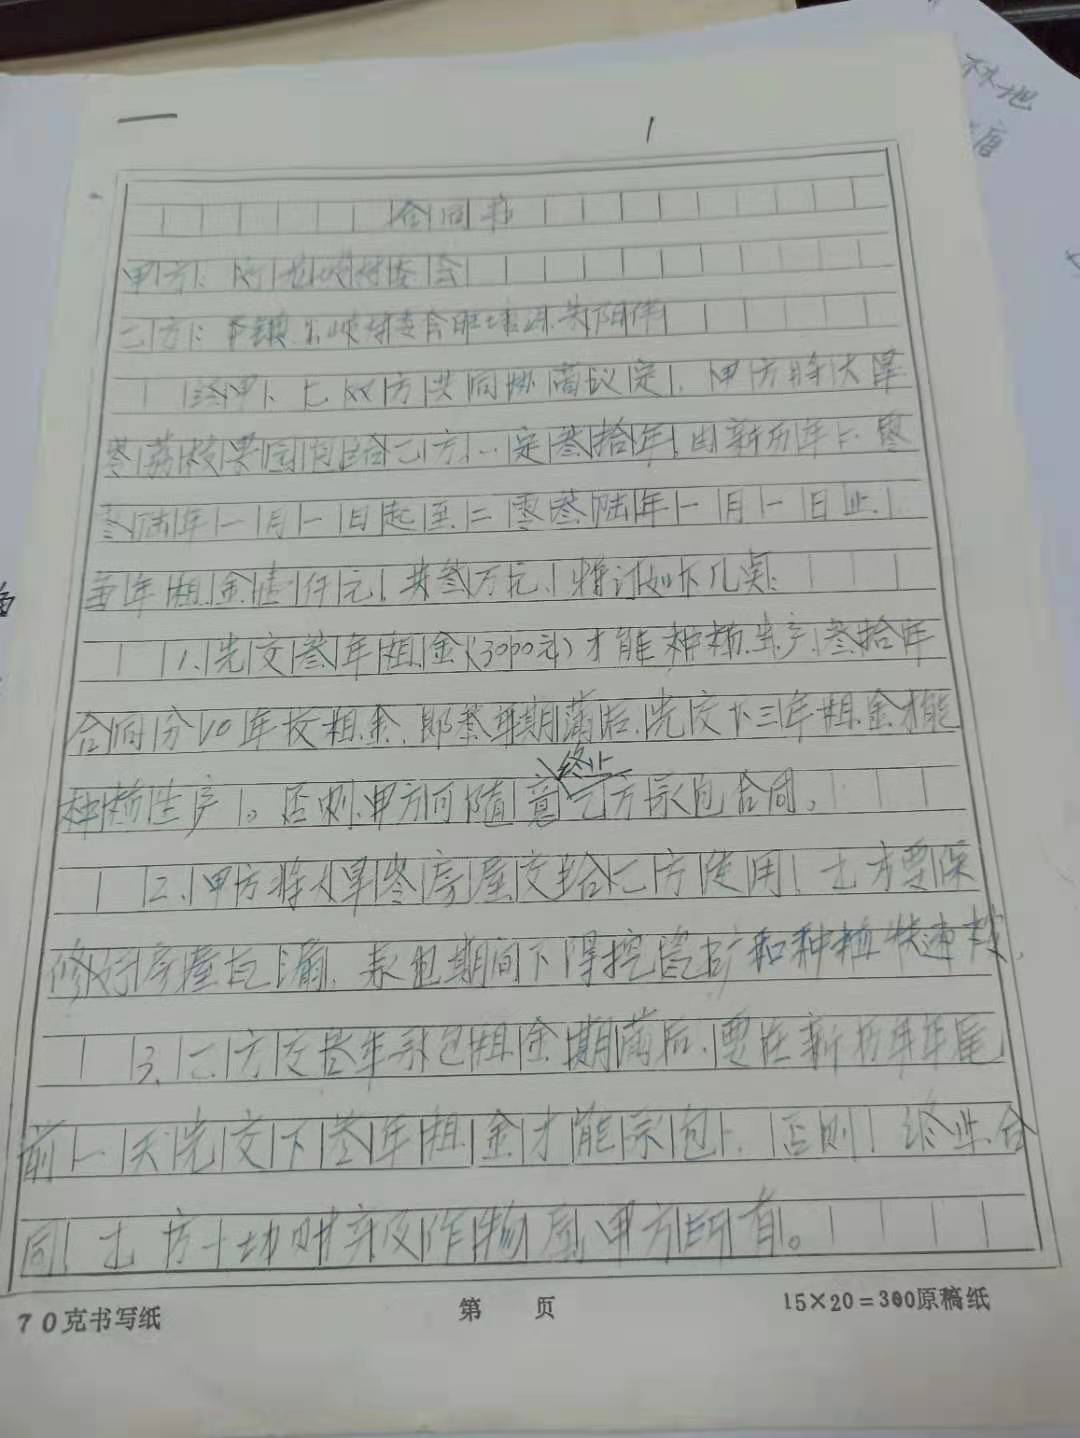 林地
1
合同书
甲方：村委会
乙方：村委会
经甲、乙双方共同协商议定，甲方将大旱
荔枝果园承包给乙方，一定叁拾年，由新历年二零
零陆年一月一日起至二零叁陆年一月一日止，
每年租金壹仟元，共叁万元，特订如下几点：
1、先交叁年租金（3000元）才能种植生产，叁拾年
合同分10年交租金，即叁年期满后，先交下三年租金才能
种植生产。否则，甲方可随意终止乙方承包合同。
2、甲方将大旱房屋交给乙方使用，乙方要保
修好房屋瓦漏，承包期间不得挖瓷矿和种植快速桉，
3、乙方在叁年承包租金期满后，要在新历年年尾
前一天先交下叁年租金才能承包，否则，终止合
同，乙方一切财产及作物属甲方所有。
70克书写纸 第 页 15×20=300原稿纸